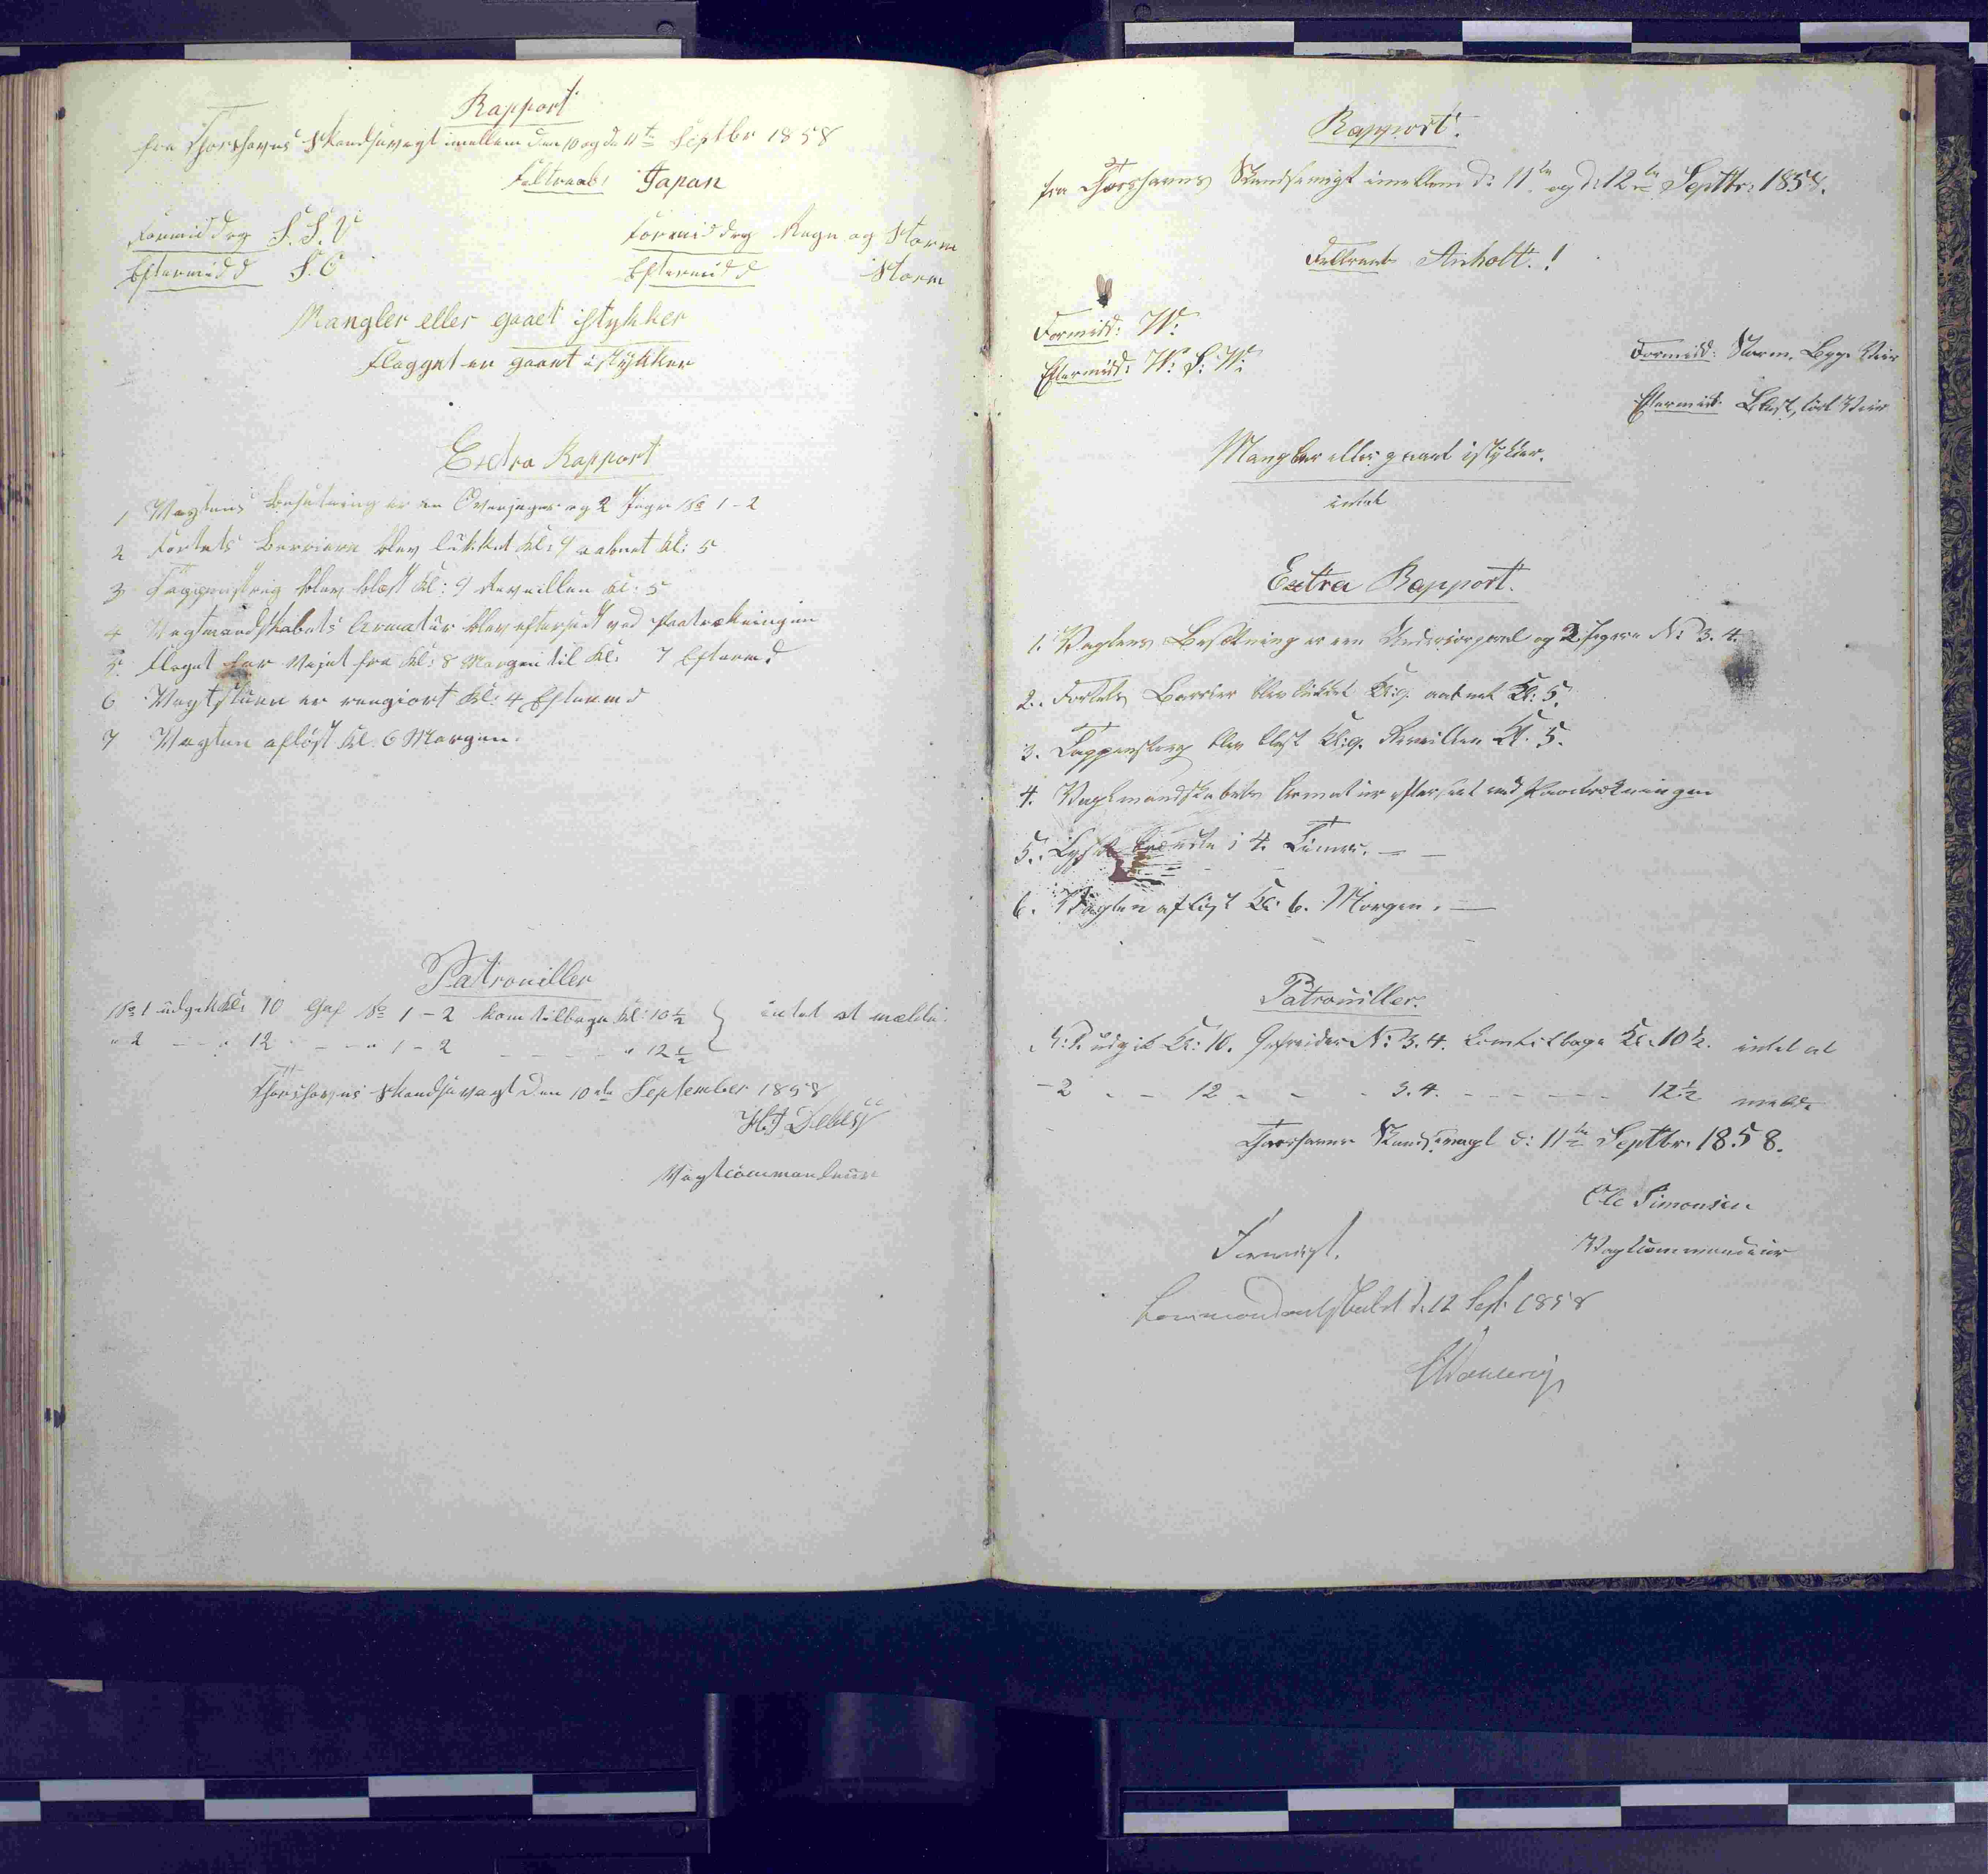 Rapport
fra Thorshavns Skandsevagt imellem den 10 og de 11te Septbr 1858
Feltraab: Japan
Formiddag S.S.V
Formiddag Regn og Storm
Eftermidd S.O
Eftermidd Storm
Mangler eller gaaet istykker
Flagget er gaaet istykker
Extra Rapport
1 Vagtens Besætning er en Overjæger og 2 Jægr No 1-2
2 Fortets Barriere blev lukket Kl: 9 aabnet Kl: 5
3 Tappenstreg blev blæst Kl: 9 Reveillen Kl: 5
4 Vagtmandskabets Armatur blev efterseet ved Paatrækningen
5. Flaget har Vejet fra Kl: 8 Morgen til Kl: 7 Efterm.d
6 Vagtstuen er rengiort Kl: 4 Efterm d
7 Vagten afløst Kl. 6 Morgen.
Patrouiller
No 1 udgik Kl: 10 Gef No 1-2 kom tilbage Kl: 10½ } intet at mælde.
" 2 - - " 12 - - - " 1-2 - - - - " 12½
Thorshavns Skandsevagt den 10de September 1858
H.J Debess
Vagtcommandeur
Rapport.
fra Thorshavns Skandsevagt imellem d: 11te og d: 12te Septbr: 1858.
Feltraab Anholt.!
Formidd: W:
Eftermidd: W: S: W:
Formidd: Storm. Byge Veir
Eftermidd: Blæst, tört Veir
Mangler eller gaaet istykker.
intet
Extra Rapport.
1. Vagtens Besætning er een Undercorporal og 2 Jægere No: 3. 4.
2. Fortets Barrier blev lukket Kl: 9. aabnet Kl: 5.
3. Tappenstreg blev blæst Kl: 9. Reveillen Kl. 5.
4. Vagtmandskabets Armatur efterseet ved Paatrækningen
5. Lyset brændte i 4. Timer. — —
6. Vagten aflöst Kl: 6. Morgen. —
Patrouiller.
N: 1. udgik Kl: 10. Gefreider N: 3. 4. kom tilbage Kl. 10½. intet at
- 2 - - 12 - - - 3. 4. - - - - - 12½ melde
Thorshavns Skandsevagt d: 11te Septbr. 1858.
Ole Simonsen
Vagtcommandeur
Forevist.
Commandantskabet d. 12 Sept. 1858